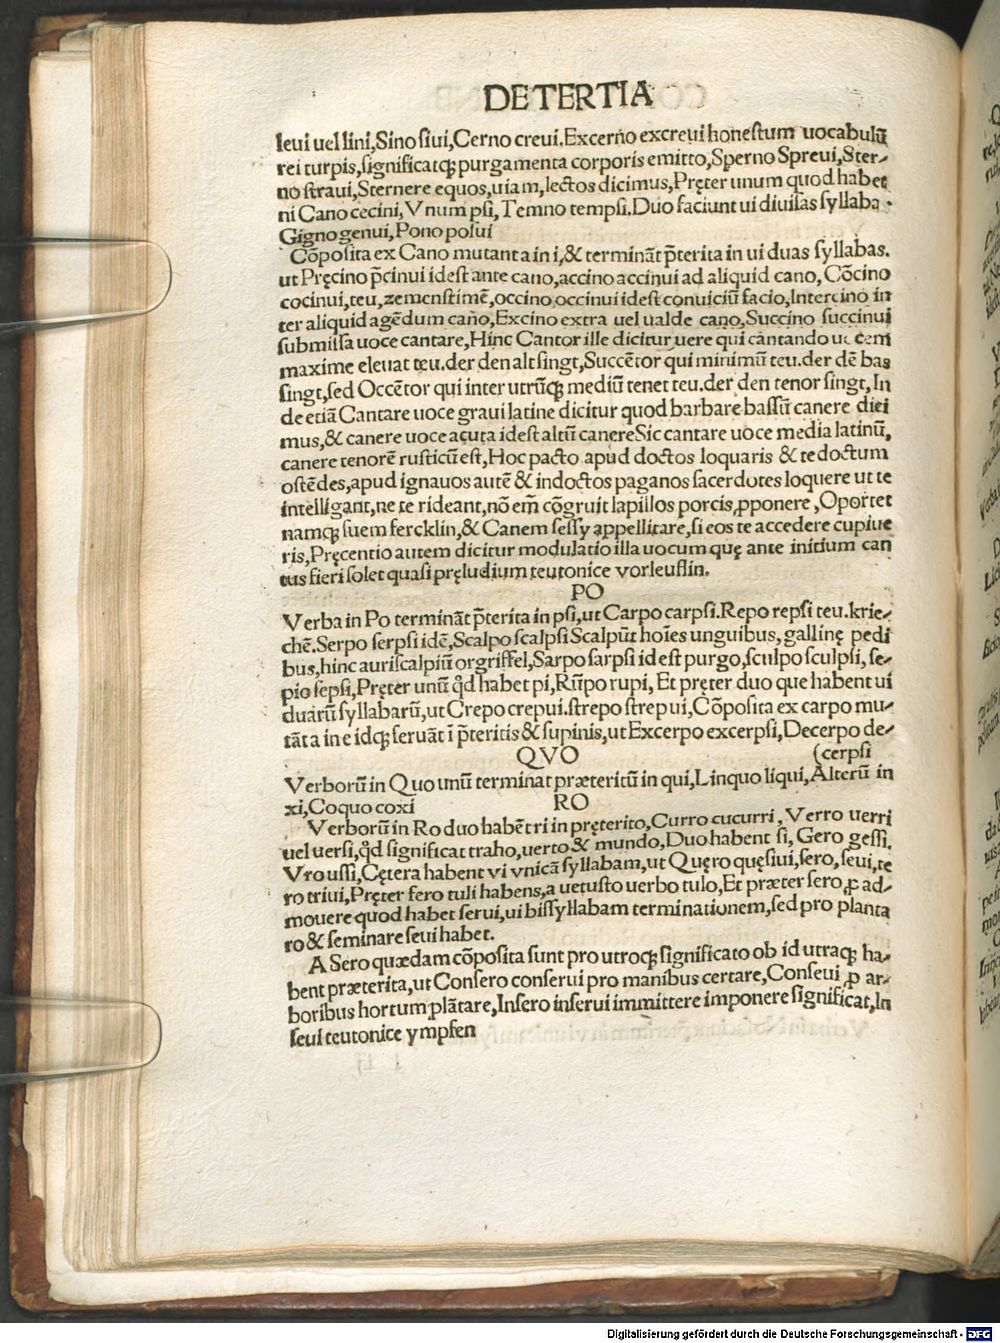 DE TERTIA
leui uel lini, Sino siui, Cerno creui. Excerno excreui honestum uocabulũ
rei turpis, significatqꝫ purgamenta corporis emitto, Sperno Spreui, Ster-
no straui, Sternere equos, uiam, lectos dicimus, Pręter unum quod habet
ni Cano cecini, Vnum psi, Temno tempsi. Duo faciunt ui diuisas syllabas
Gigno genui, Pono posui
Cõposita ex Cano mutant a in i, & terminãt p̃terita in ui duas syllabas.
ut Pręcino p̃cinui idest ante cano, accino accinui ad aliquid cano, Cõcino
cocinui, teu, zemenstimẽ, occino occinui idest conuiciũ facio, Intercino in
ter aliquid agẽdum cano, Excino extra uel ualde cano, Succino succinui
submissa uoce cantare, Hinc Cantor ille dicitur uere qui cantando uocem
maxime eleuat teu. der den alt singt, Succẽtor qui minimũ teu. der dẽ bas
singt, sed Occẽtor qui inter utrũqꝫ mediũ tenet teu. der den tenor singt, In
de etiã Cantare uoce graui latine dicitur quod barbare bassũ canere dici
mus, & canere uoce acuta idest altũ canere Sic cantare uoce media latinũ,
canere tenorẽ rusticũ est, Hoc pacto apud doctos loquaris & te doctum
ostẽdes, apud ignauos autẽ & indoctos paganos sacerdotes loquere ut te
intelligant, ne te rideant, nõ em̃ cõgruit lapillos porcis ꝓponere, Oportet
namqꝫ suem fercklin, & Canem sessy appellitare, si eos te accedere cupiue
ris, Pręcentio autem dicitur modulatio illa uocum quę ante initium can
tus fieri solet quasi pręludium teutonice vorleuflin.
PO
Verba in Po terminãt p̃terita in psi, ut Carpo carpsi. Repo repsi teu. krie-
chẽ. Serpo serpsi idẽ, Scalpo scalpsi Scalpũt hoĩes unguibus, gallinę pedi
bus, hinc auriscalpiũ orgriffel, Sarpo sarpsi idest purgo, sculpo sculpsi, se-
pio sepsi, Pręter unũ qđ habet pi, Rũpo rupi, Et pręter duo que habent ui
duarũ syllabarũ, ut Crepo crepui. strepo strepui, Cõposita ex carpo mu-
tãt a in e idqꝫ seruãt ĩ p̃teritis & supinis, ut Excerpo excerpsi, Decerpo de-
QVO (cerpsi
Verborũ in Quo unũ terminat præteritũ in qui, Linquo liqui, Alterũ in
xi, Coquo coxi RO
Verborũ in Ro duo habẽt ri in pręterito, Curro cucurri, Verro uerri
uel uersi, qđ significat traho, uerto & mundo, Duo habent si, Gero gessi.
Vro ussi, Cętera habent vi vnicã syllabam, ut Quęro quęsiui, sero, seui, te
ro triui, Pręter fero tuli habens, a uetusto uerbo tulo, Et præter sero, ꝓ ad-
mouere quod habet serui, ui bissyllabam terminationem, sed pro planta
ro & seminare seui habet.
A Sero quædam cõposita sunt pro utroqꝫ significato ob id utraqꝫ ha-
bent præterita, ut Consero conserui pro manibus certare, Conseui ꝓ ar-
boribus hortum plãtare, Insero inserui immittere imponere significat, In
seui teutonice ympfen
Digitalisierung gefördert durch die Deutsche Forschungsgemeinschaft - DFG